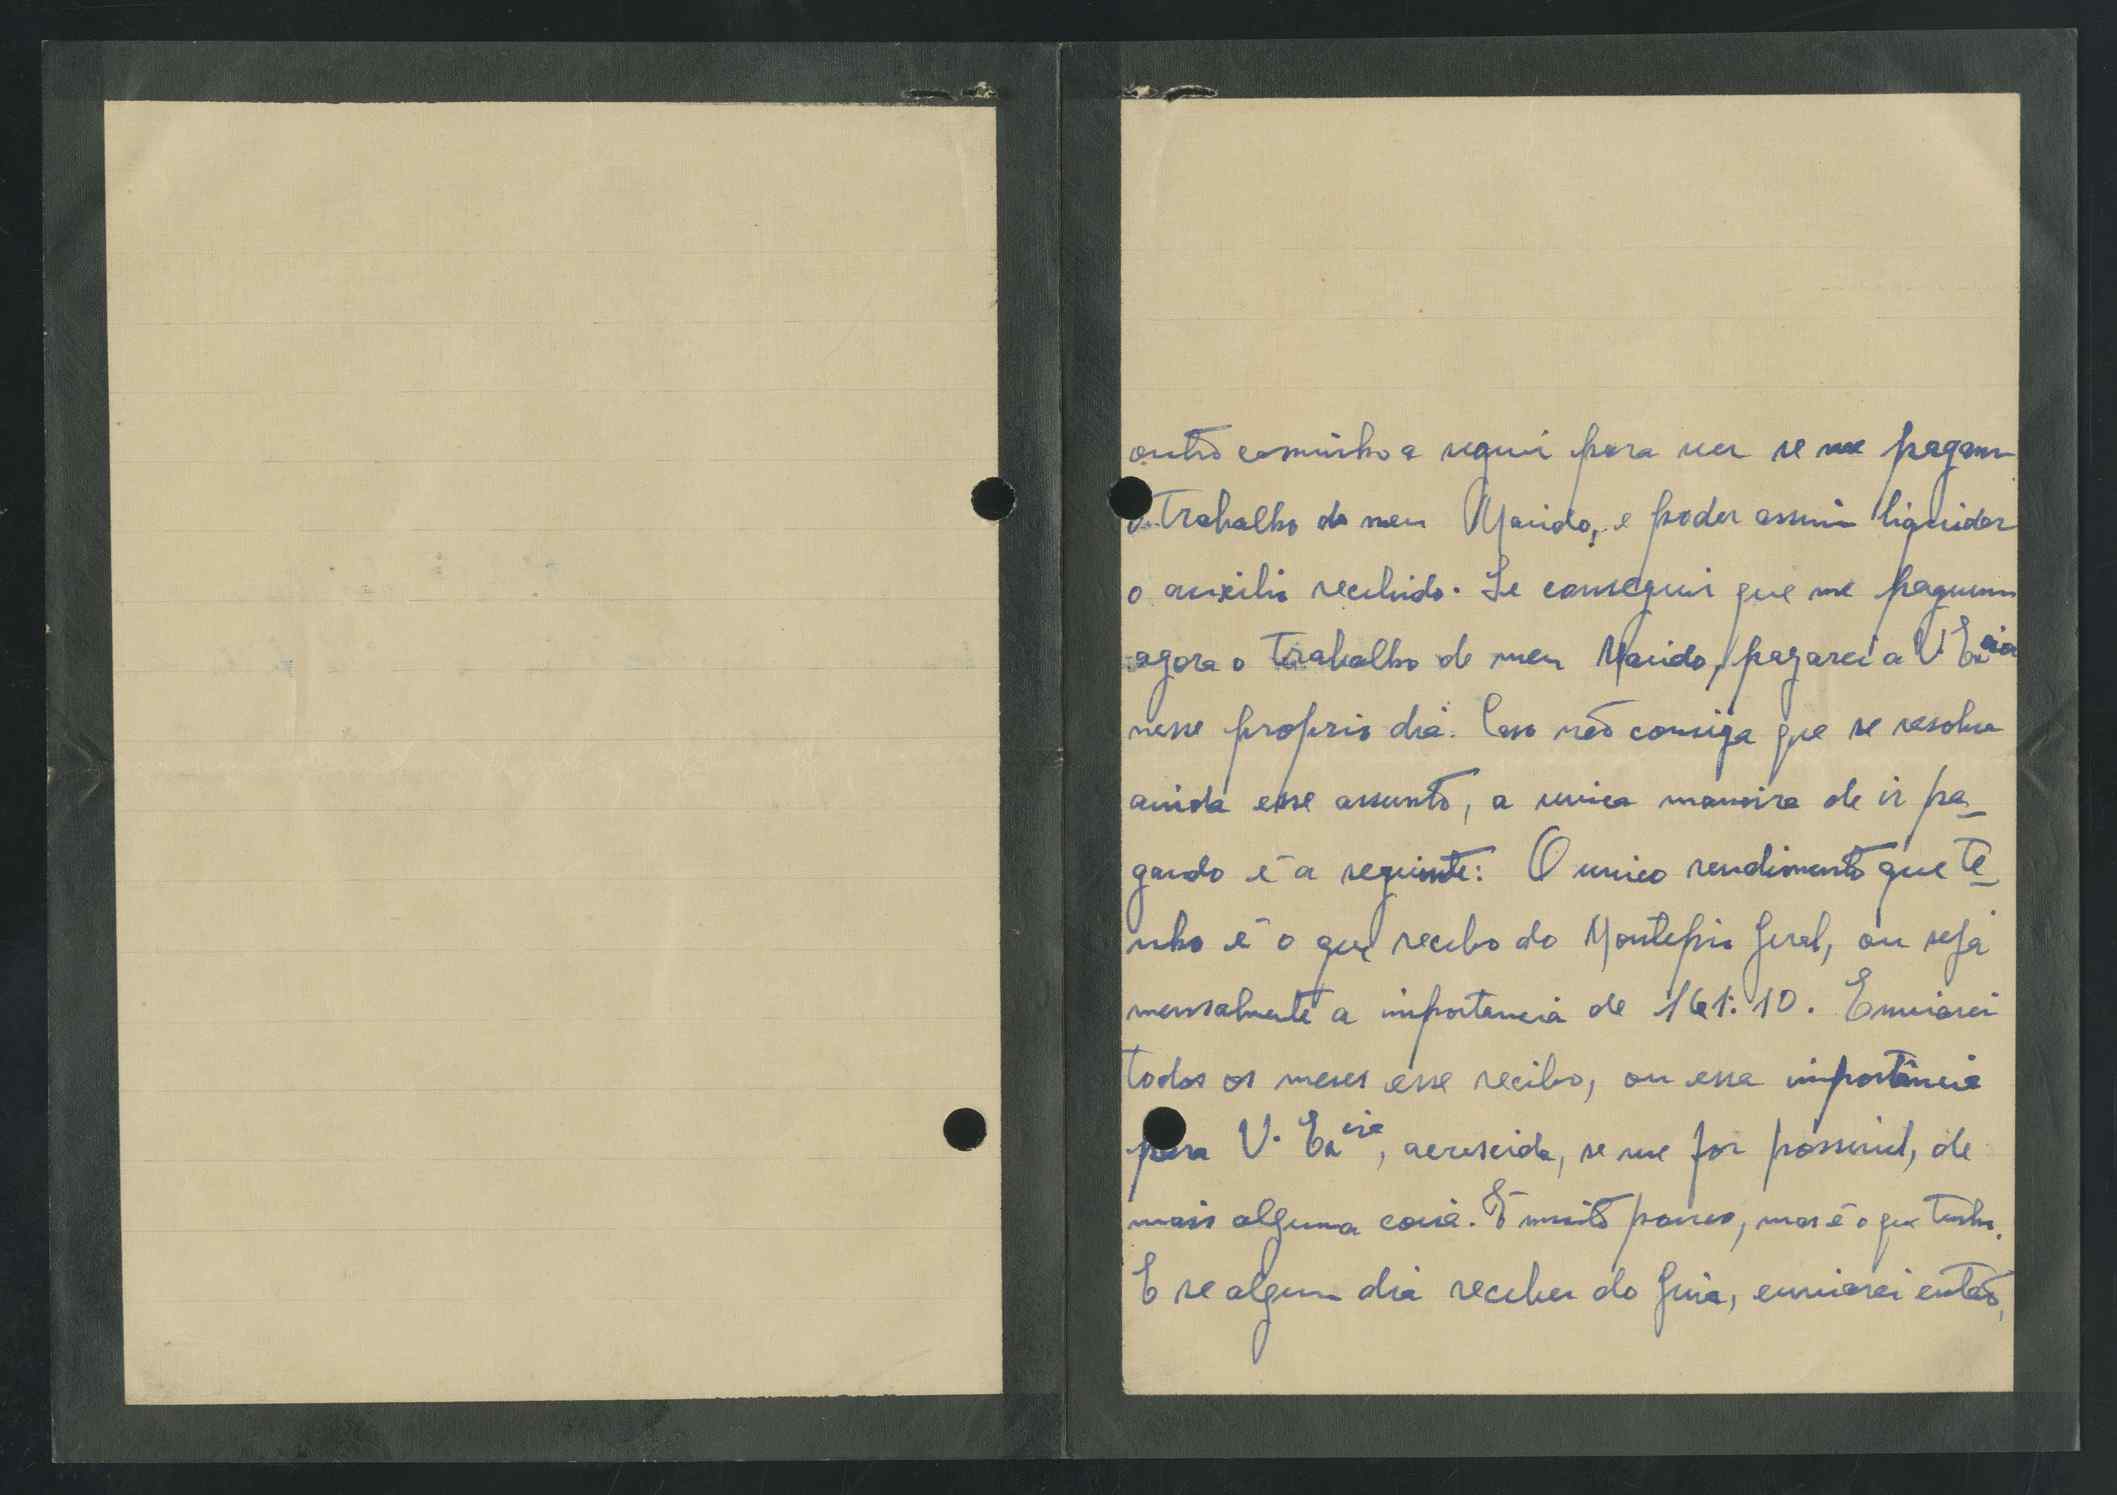 outro caminho a seguir para ver se me pagam
o trabalho do meu Marido, e poder assim liquidar
o auxilio recebido. Se conseguir que me paguem
agora o trabalho de meu Marido, pagarei a V. Ex.cia
nesse proprio dia. Caso não consiga que se resolva
ainda esse assunto, a unica maneira de ir pa-
gando é a seguinte: O unico rendimento que te-
nho é o que recebo do Montepio Geral, ou seja
mensalmente a importancia de 161:10. Enviarei
todos os meses esse recibo, ou essa importância
para V. Ex.cia, acrescida, se me for possivel, de
mais alguma coisa. É muito pouco, mas é o que tenho.
E se algum dia receber do Guia, enviarei então,